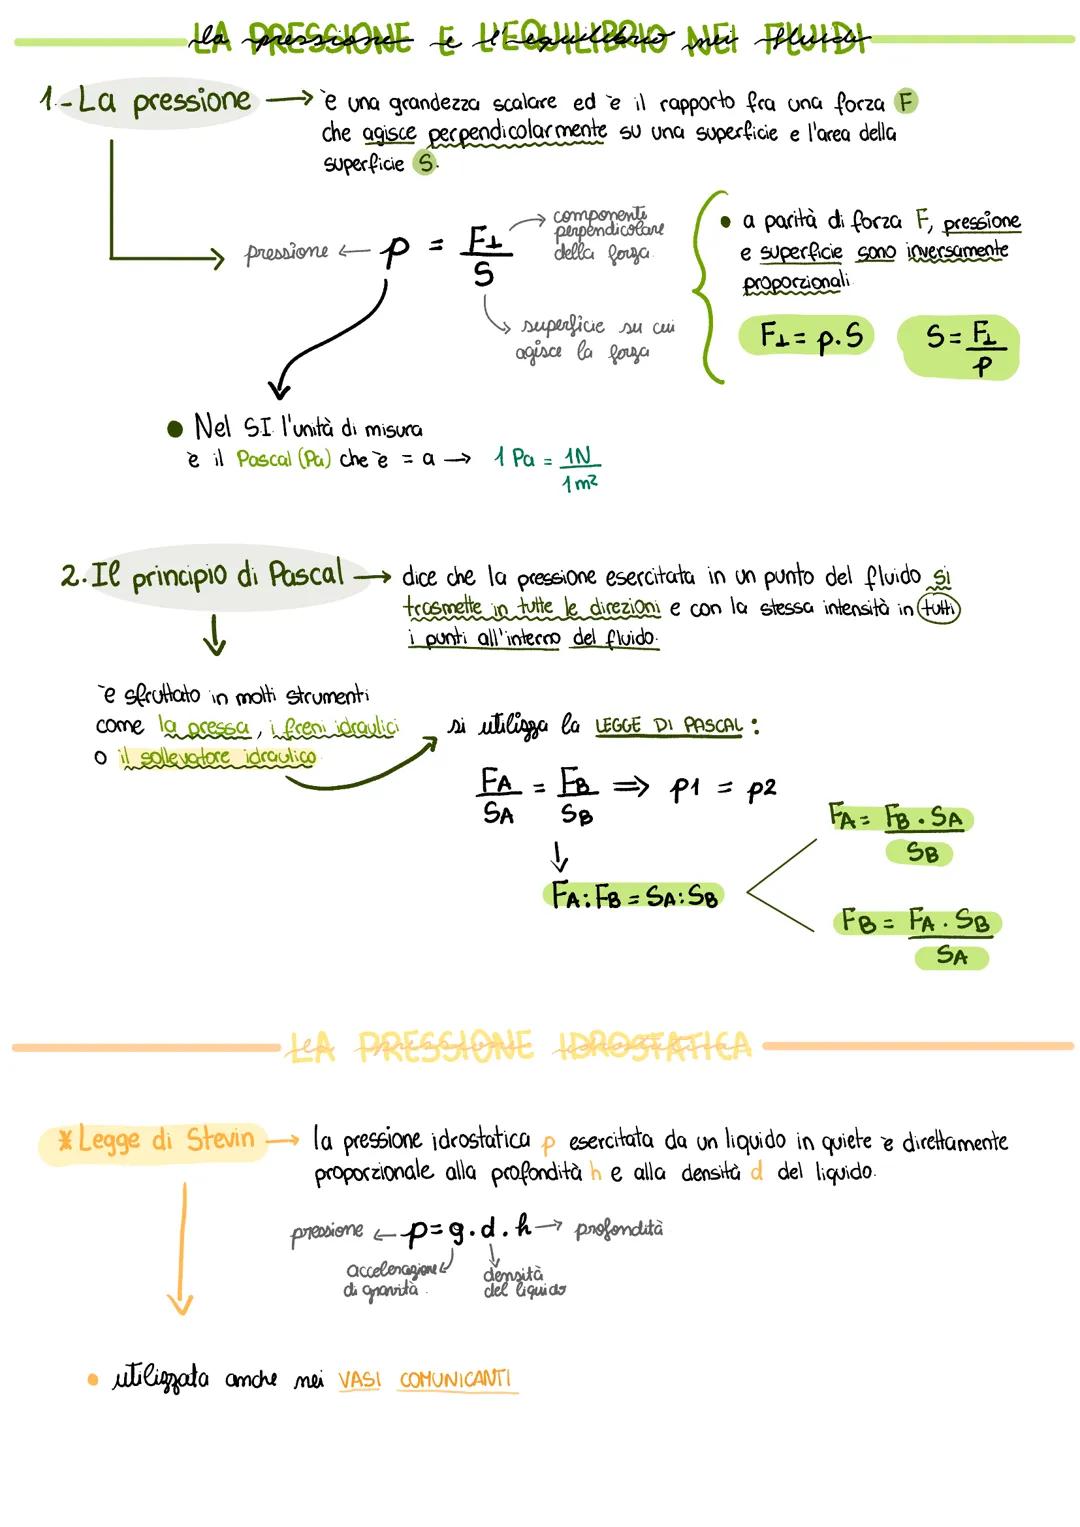 LA PRESSIONE E L'EQUILIBRIO NEI FLUIDI
1.-La pressione → è una grandezza scalare ed è il rapporto fra una forza F
che agisce perpendicolarmente su una superficie e l'area della
superficie S.
pressione ← p = F⊥/S
componente
perpendicolare
della forza.
superficie su cui
agisce la forza
• a parità di forza F, pressione
e superficie sono inversamente
proporzionali
F⊥ = p.S S = F⊥/p
• Nel SI l'unità di misura
è il Pascal (Pa) che è = a → 1 Pa = 1N/1m²
2.Il principio di Pascal → dice che la pressione esercitata in un punto del fluido si
trasmette in tutte le direzioni e con la stessa intensità in tutti
i punti all'interno del fluido.
è sfruttato in molti strumenti
come la pressa, i freni idraulici
o il sollevatore idraulico
si utilizza la LEGGE DI PASCAL:
FA/SA = FB/SB ⇒ p1 = p2
↓
FA:FB = SA:SB
FA = FB . SA/SB
FB = FA . SB/SA
LA PRESSIONE IDROSTATICA
* Legge di Stevin → la pressione idrostatica p esercitata da un liquido in quiete è direttamente
proporzionale alla profondità h e alla densità d del liquido.
pressione ← p = g.d.h → profondità
accelerazione
di gravità.
densità
del liquido
• utilizzata anche nei VASI COMUNICANTI